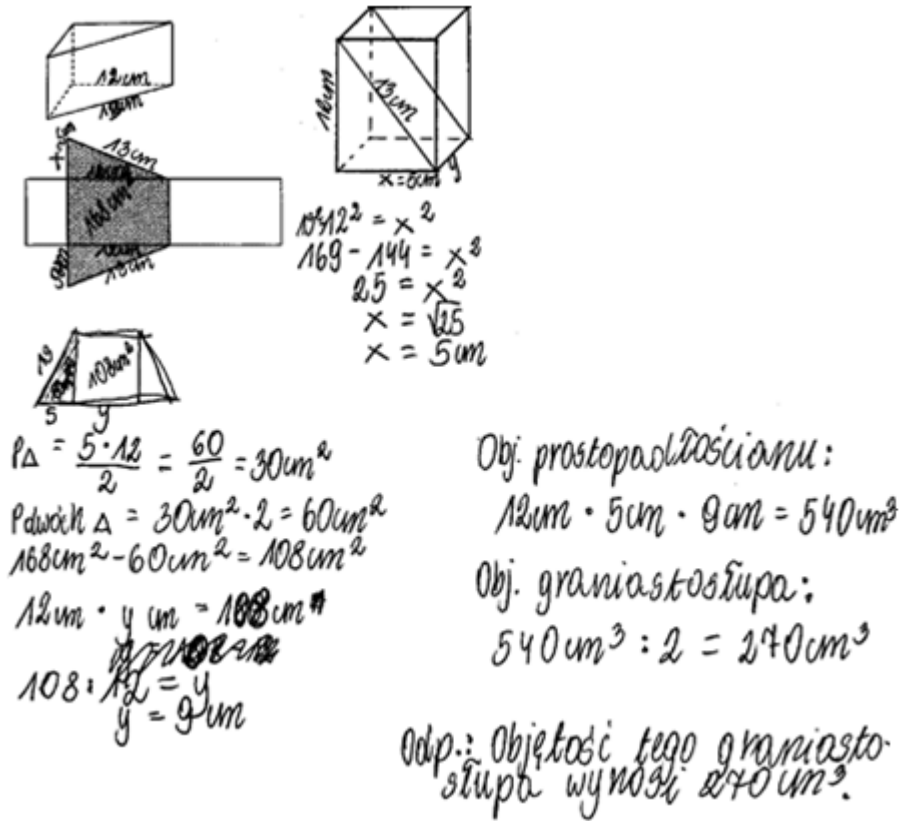 12cm
13cm
12cm
13cm
x = 5cm
y
x
13cm
168cm²
13cm
13²-12² = x²
169 - 144 = x²
25 = x²
x = √25
x = 5cm
13
108cm²
5 y
P△ = 5·12/2 = 60/2 = 30cm²
P dwóch △ = 30cm²·2 = 60cm²
168cm² - 60cm² = 108cm²
12cm · y cm = 108cm
108 : 12 = y
y = 9cm
Obj. prostopadłościanu:
12cm · 5cm · 9cm = 540cm³
Obj. graniastosłupa:
540cm³ : 2 = 270cm³
Odp.: Objętość tego graniasto-
słupa wynosi 270cm³.